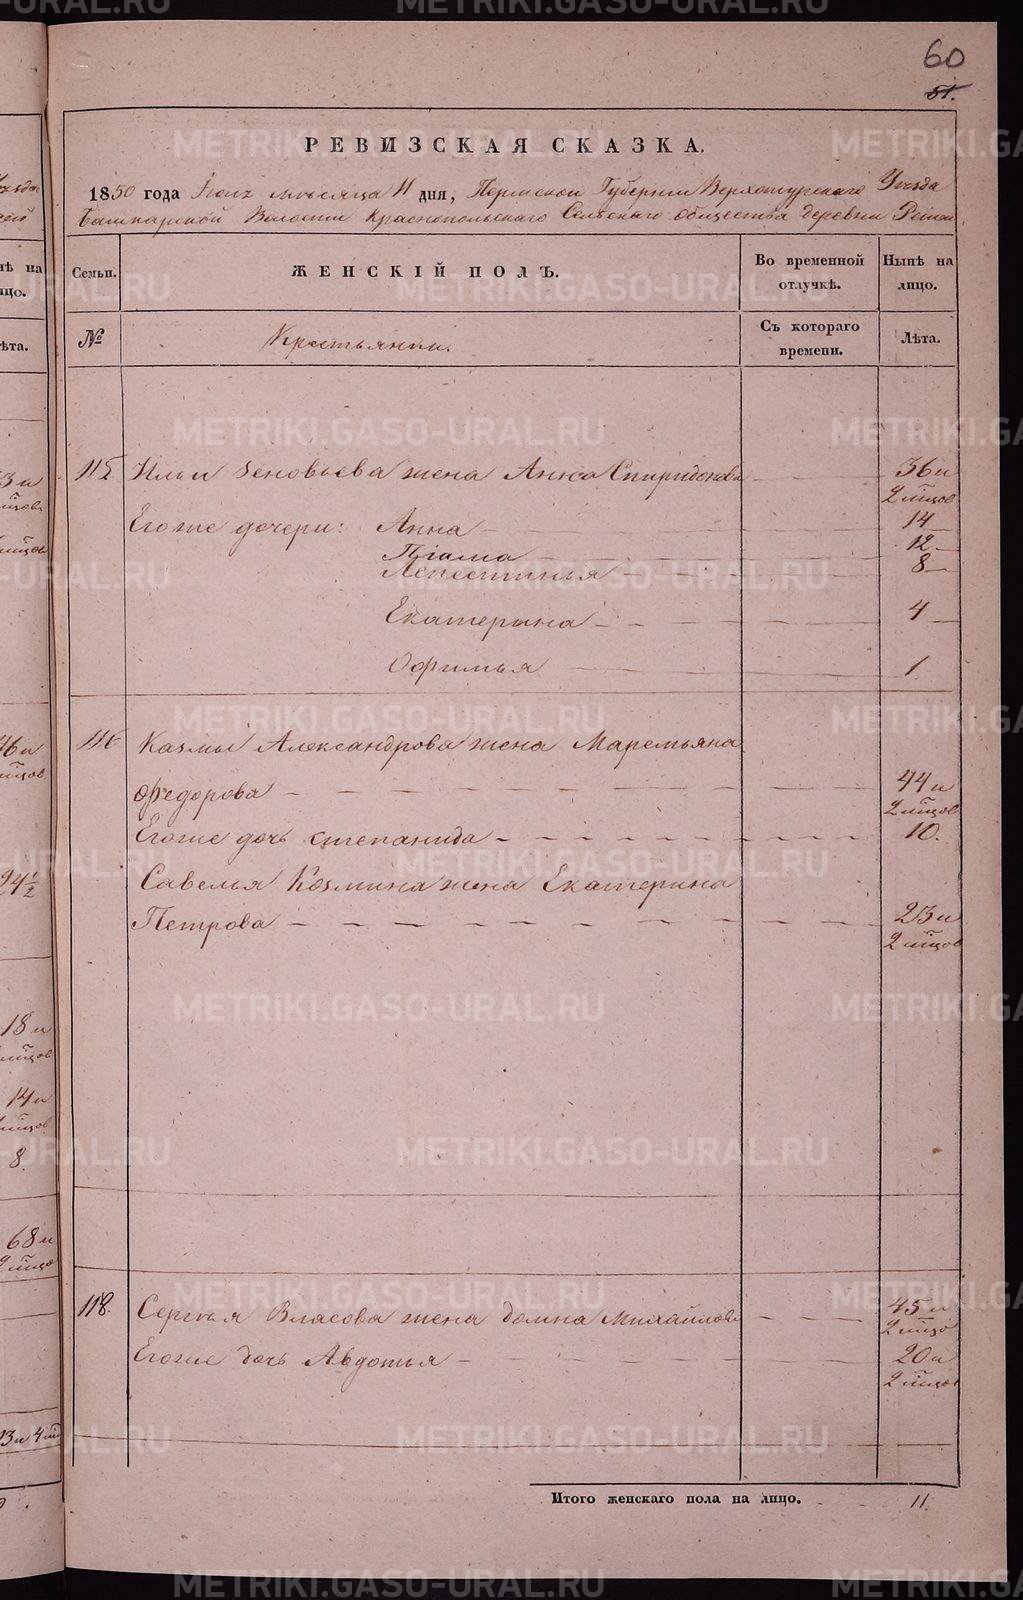 60
51.
РЕВИЗСКАЯ СКАЗКА.
1850 года Іюля мѣсяца 11 дня, Пермской Губерніи Верхотурскаго Уѣзда
Башкарской Волости Краснопольскаго Сельскаго общества деревни
Семьи. ЖЕНСКІЙ ПОЛЪ. Во временной отлучкѣ. Нынѣ на лицо.
№ Крестьянки. Съ котораго времени. Лѣта.
115 Ильи Зеновьева жена Анна Спиридонова 36 и
2 мцов
Егоже дочери: Анна 14
12
8
Екатерина 4
Офимья 1.
116 Казмы Александрова жена Маремьяна
Федорова 44 и
2 мцов
Егоже дочь Степанида 10.
Савелья Козмина жена Екатерина
Петрова 23 и
2 мцов
118. Сергѣя Власова жена Домна Михайлова 45 и
2 мцо
Егоже дочь Авдотья 20 и
2 мцов
Итого женскаго пола на лицо. 11.